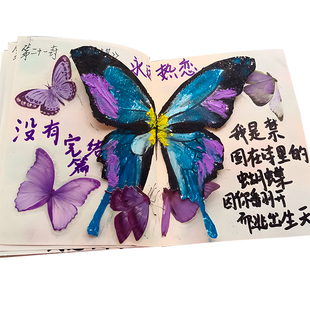 第二十一封
永 热恋
没有完结
篇
我是禁
困在诗里的
蝴蝶
因你
而逃出生天